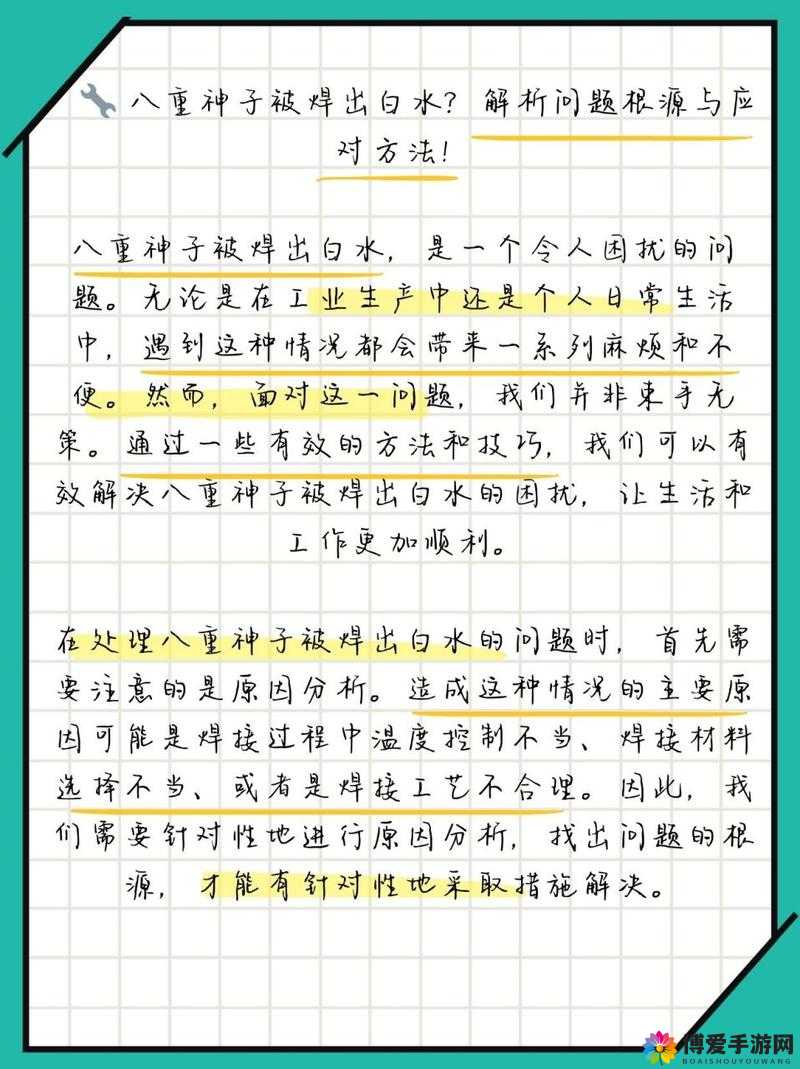 八重神子被焊出白水? 解析问题根源与应
对方法!
八重神子被焊出白水，是一个令人困扰的问
题。无论是在工业生产中还是个人日常生活
中，遇到这种情况都会带来一系列麻烦和不
便。然而，面对这一问题，我们并非束手无
策。通过一些有效的方法和技巧，我们可以有
效解决八重神子被焊出白水的困扰，让生活和
工作更加顺利。
在处理八重神子被焊出白水的问题时，首先需
要注意的是原因分析。造成这种情况的主要原
因可能是焊接过程中温度控制不当、焊接材料
选择不当、或者是焊接工艺不合理。因此，我
们需要针对性地进行原因分析，找出问题的根
源，才能有针对性地采取措施解决。
博爱手游网
BOAISHOUYOUWANG